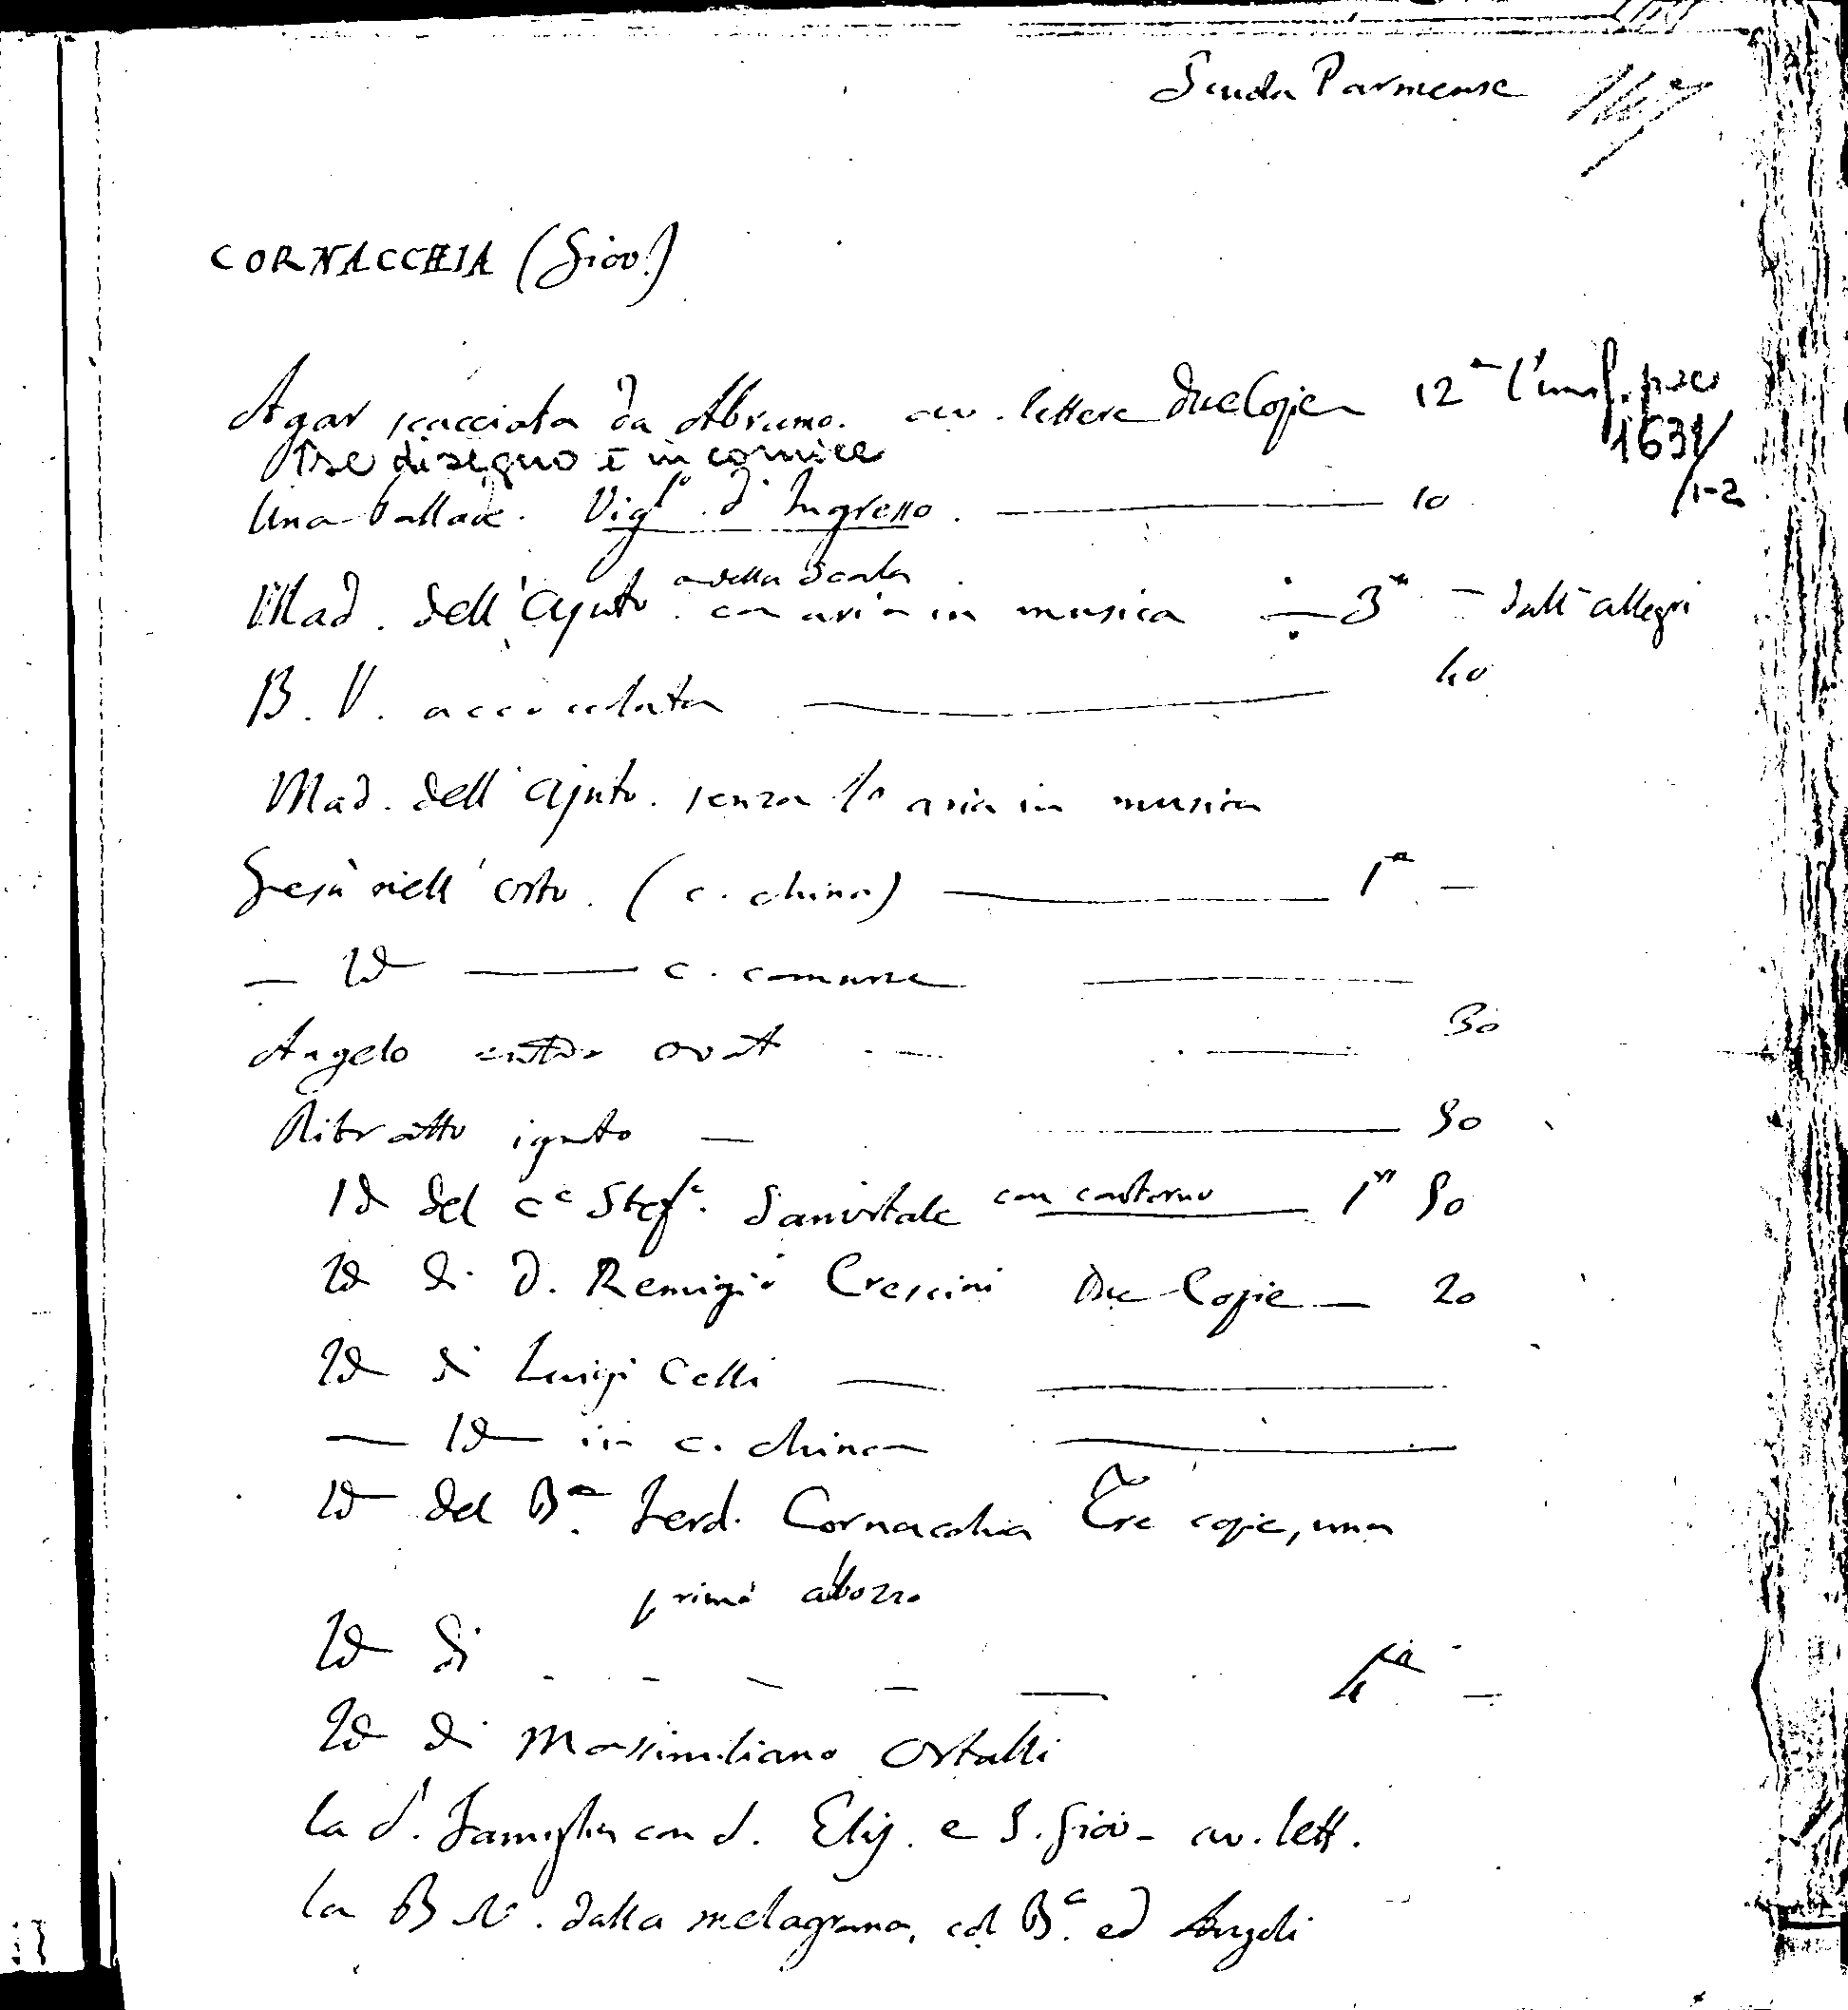 Scuola Parmense 147
CORNACCHIA (Giov.)
Agar scacciata da Abramo. av. lettere due Copie 12
Il disegno è in cornice
1631/
/1-2
Una ballade. Vigl.º d'Ingresso. 10
Mad. dell'Ajuto o della Scala con aria in musica 3 dall'allegri
B. V. accoccolata 40
Mad. dell'ajuto. senza la aria in musica
Gesù nell'orto. (c. china) 1
Id c. comune
Angelo entro ovat 30
Ritratto ignoto 50
Id del Cᵉ Stefᵒ. Sanvitale con contorno 1 50
Id di D. Remigio Crescini Due Copie 20
Id di Luigi Celli
Id in c. china
Id del Bⁿᵉ. Ferd. Cornacchia Tre copie, una
primo abozzo
Id di 4
Id di Massimiliano Ortalli
la S. Famiglia con S. Elis. e S. Giov. av. lett.
la B V. dalla melagrana, col Bº. ed Angeli